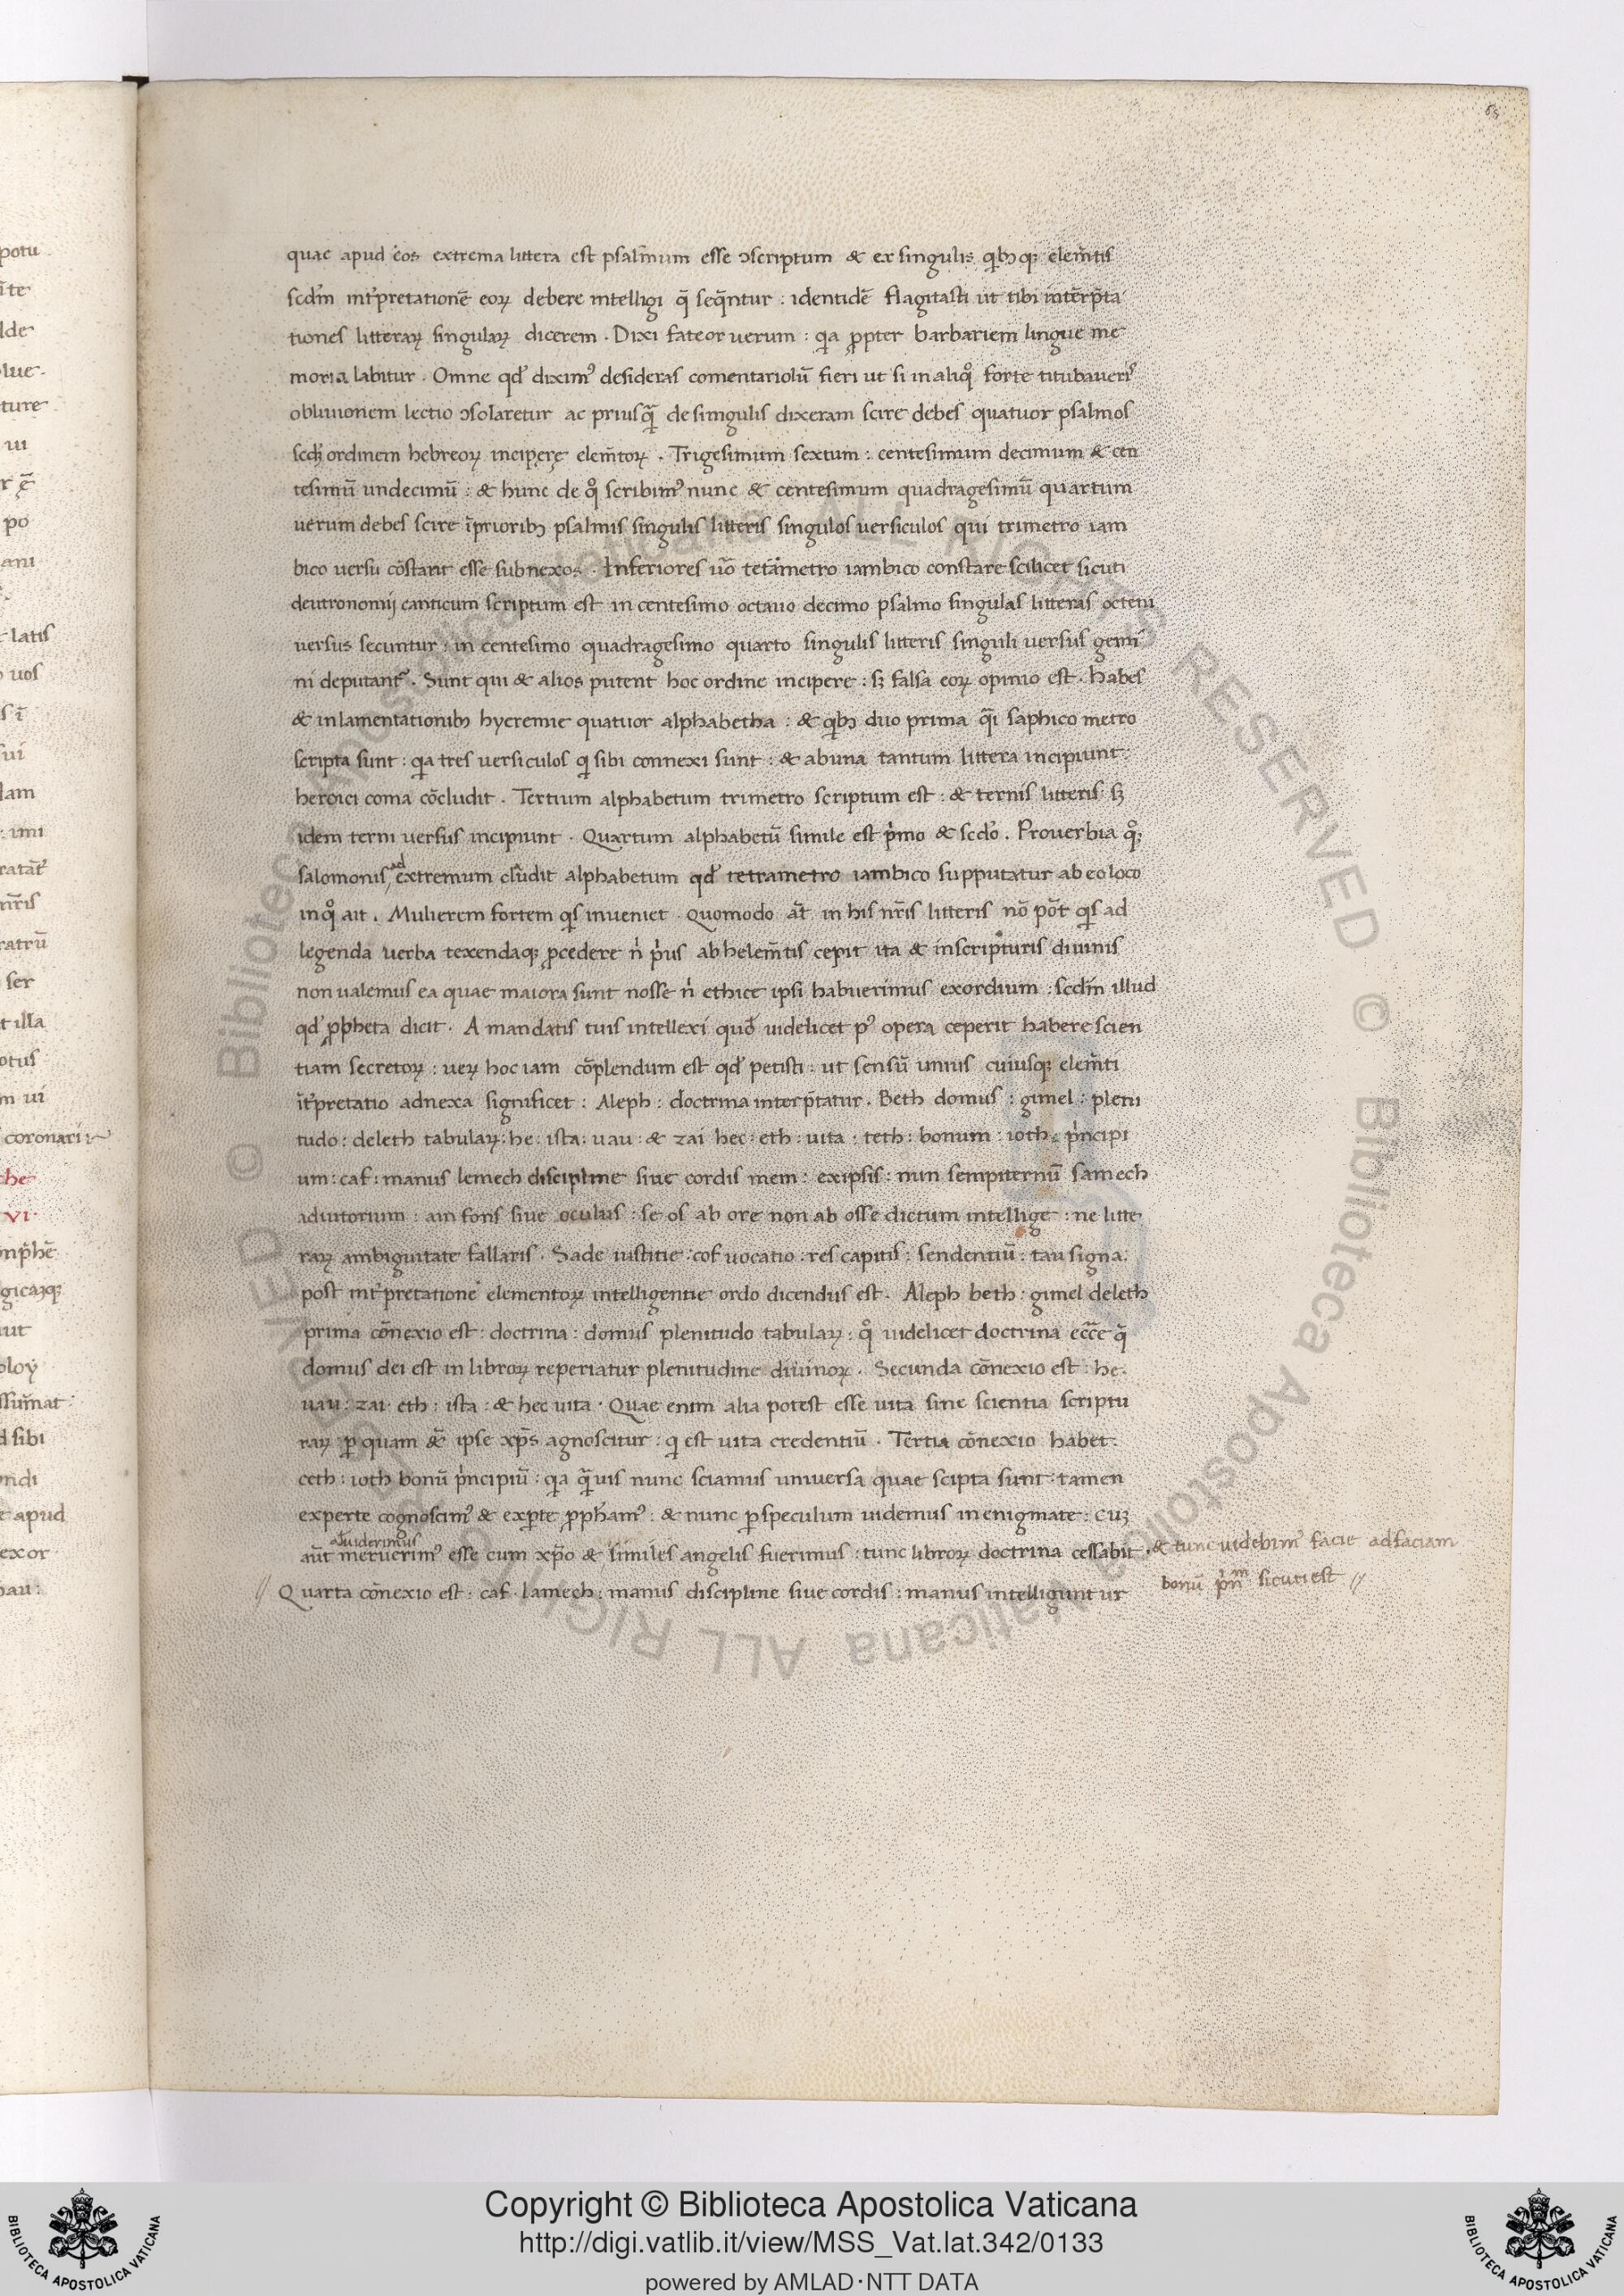 68
quae apud eos extrema littera est psalmum esse ɔscriptum & ex singulis qbꝫ qꝫ elem̄tis
scdm int̄pretationē eoꝝ debere intelligi q̄ seq̄ntur : identidē flagitasti ut tibi int̄erp̄ta
tiones litteraꝝ singulaꝝ dicerem . Dixi fateor uerum : qa ꝓpter barbariem lingue me
moria labitur . Omne qd diximꝰ desideras comentariolū fieri ut si in aliqͦ forte titubaueriˢ
obliuionem lectio ɔsolaretur ac priusq̄ de singulis dixeram scire debes quatuor psalmos
scdꝫ ordinem hebreoꝝ incipere elem̄toꝝ . Trigesimum sextum : centesimum decimum & cen
tesimū undecimū : & hunc de qͦ scribimꝰ nunc & centesimum quadragesimū quartum
uerum debes scire īprioribꝫ psalmis singulis litteris singulos uersiculos qui trimetro iam
bico uersu cōstant esse subnexos . Inferiores uō tetrametro iambico constare scilicet sicuti
deutronomij canticum scriptum est in centesimo octauo decimo psalmo singulas litteras octeni
uersus secuntur : in centesimo quadragesimo quarto singulis litteris singuli uersus gemi
ni deputant᷑ . Sunt qui & alios putent hoc ordine incipere : sꝫ falsa eoꝝ opinio est . habes
& in lamentationibꝫ hyeremie quatuor alphabetha : & qbꝫ duo prima q̄i saphico metro
scripta sunt : qa tres uersiculos q sibi connexi sunt : & abuna tantum littera incipiunt :
heroici coma cōcludit . Tertium alphabetum trimetro scriptum est : & ternis litteris sꝫ
idem terni uersus incipiunt . Quartum alphabetū simile est p̍mo & scdo . Prouerbia qͦꝫ
salomonis ad extremum cludit alphabetum qd tetrametro iambico supputatur ab eo loco
inqͦ ait . Mulierem fortem qs inueniet . Quomodo āt in his nr̄is litteris nō pōt qs ad
legenda uerba texendaqꝫ ꝓcedere n̍ p̍us ab helem̄tis cepit ita & inscripturis diuinis
non ualemus ea quae maiora sunt nosse n̍ ethice ipsi habuerimus exordium : scdm illud
qd ꝓpheta dicit . A mandatis tuis intellexi quod uidelicet pꝰ opera ceperit habere scien
tiam secretoꝝ : ueꝝ hoc iam cōplendum est qd petisti : ut sensū unius cuiusqꝫ elem̄ti
it̄pretatio adnexa significet : Aleph : doctrina interp̄tatur . Beth domus : gimel : pleni
tudo : deleth tabulaꝝ : he : ista : uau : & zai hec : eth : uita : teth : bonum : ioth : p̍ncipi
um : caf : manus lemech discipline siue cordis mem : exipsis : nun sempiternū samech
adiutorium : ain fons siue oculus : se os ab ore non ab osse dictum intellige : ne litte
raꝝ ambiguitate fallaris . Sade iustitie : cof uocatio : res capitis : sendentiū : tau signa :
post int̄pretatione elementoꝝ intelligentie ordo dicendus est . Aleph beth : gimel deleth
prima cōnexio est : doctrina : domus plenitudo tabulaꝝ : qͦ uidelicet doctrina eccē q̄
domus dei est in libroꝝ reperiatur plenitudine diuinoꝝ . Secunda cōnexio est : he :
uau : zai : eth : ista : & hec uita . Quae enim alia potest esse uita sine scientia scriptu
raꝝ ꝑ quam & ipse xp̄s agnoscitur : q est uita credentiū . Tertia cōnexio habet :
ceth : ioth bonū p̍ncipiū : qa q̄uis nunc sciamus uniuersa quae scipta sunt : tamen
experte cognoscimꝰ & exꝑte ꝓph̄amꝰ : & nunc ꝑ speculum uidemus in enigmate : cuꝫ
aūt meruerimꝰ esse cum xp̄o & similes angelis fuerimus : tunc libroꝝ doctrina cessabit . & tunc uidebimꝰ facie adfaciam
bonū p̍n̄m sicuti est //
// Quarta cōnexio est : caf . lamech : manus discipline siue cordis : manus intelliguntur
Copyright © Biblioteca Apostolica Vaticana
http://digi.vatlib.it/view/MSS_Vat.lat.342/0133
powered by AMLAD·NTT DATA